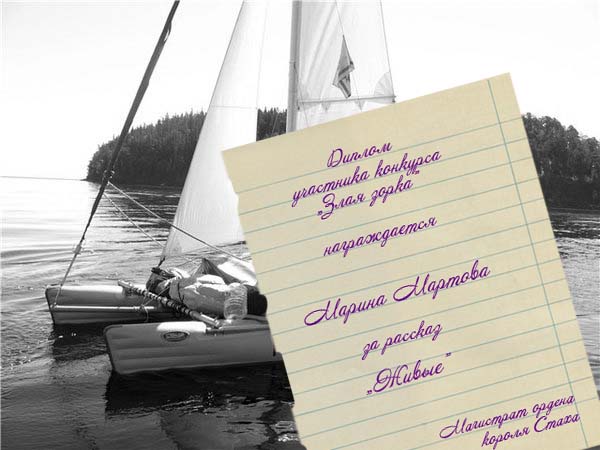 Диплом
участника конкурса
„Злая зорка"
награждается
Марина Мартова
за рассказ
„Живые"
Магистрат ордена
короля Стаха